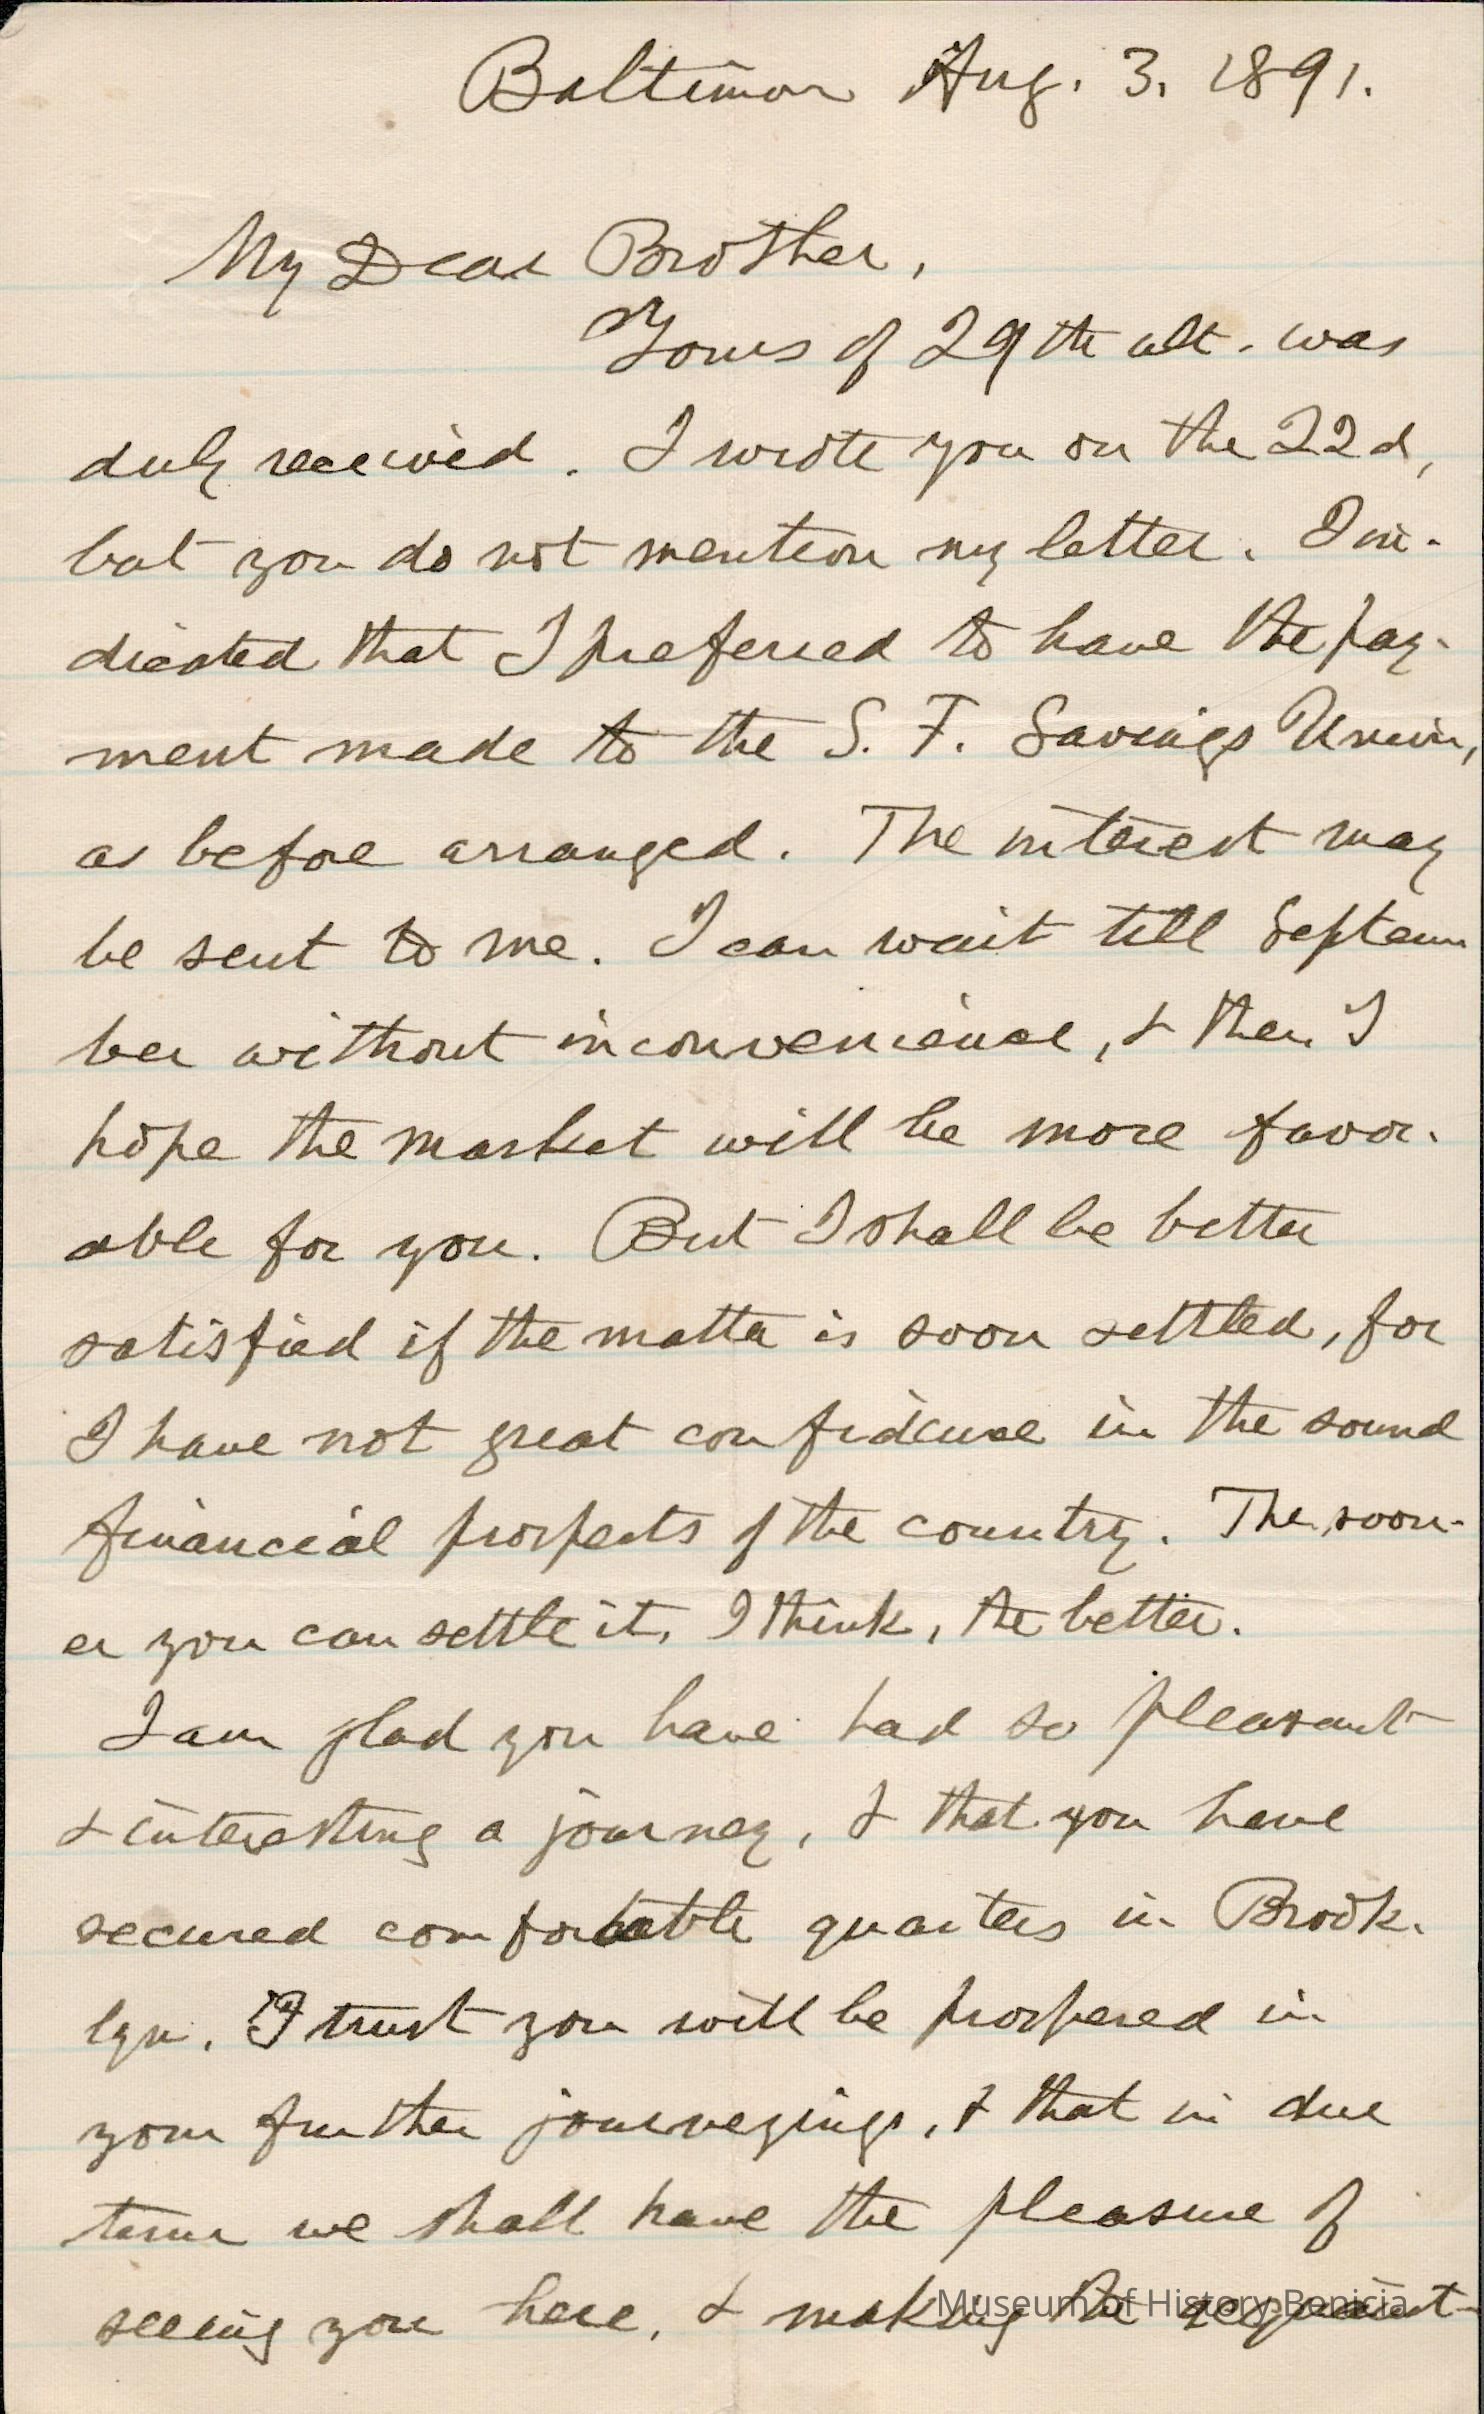 Baltimore Aug. 3. 1891.
My Dear Brother,
Yours of 29th ult. was
duly received. I wrote you on the 22d,
but you do not mention my letter. I in-
dicated that I preferred to have the pay-
ment made to the S. F. Savings Union,
as before arranged. The interest may
be sent to me. I can wait till Septem
ber without inconvenience, & then I
hope the market will be more favor-
able for you. But I shall be better
satisfied if the matter is soon settled, for
I have not great confidence in the sound
financial prospects of the country. The soon-
er you can settle it, I think, the better.
I am glad you have had so pleasant
& interesting a journey, & that you have
secured comfortable quarters in Brook-
lyn. I trust you will be prospered in
your further journeyings, & that in due
time we shall have the pleasure of
seeing you here, & making the acquaint-
Museum of History Benicia